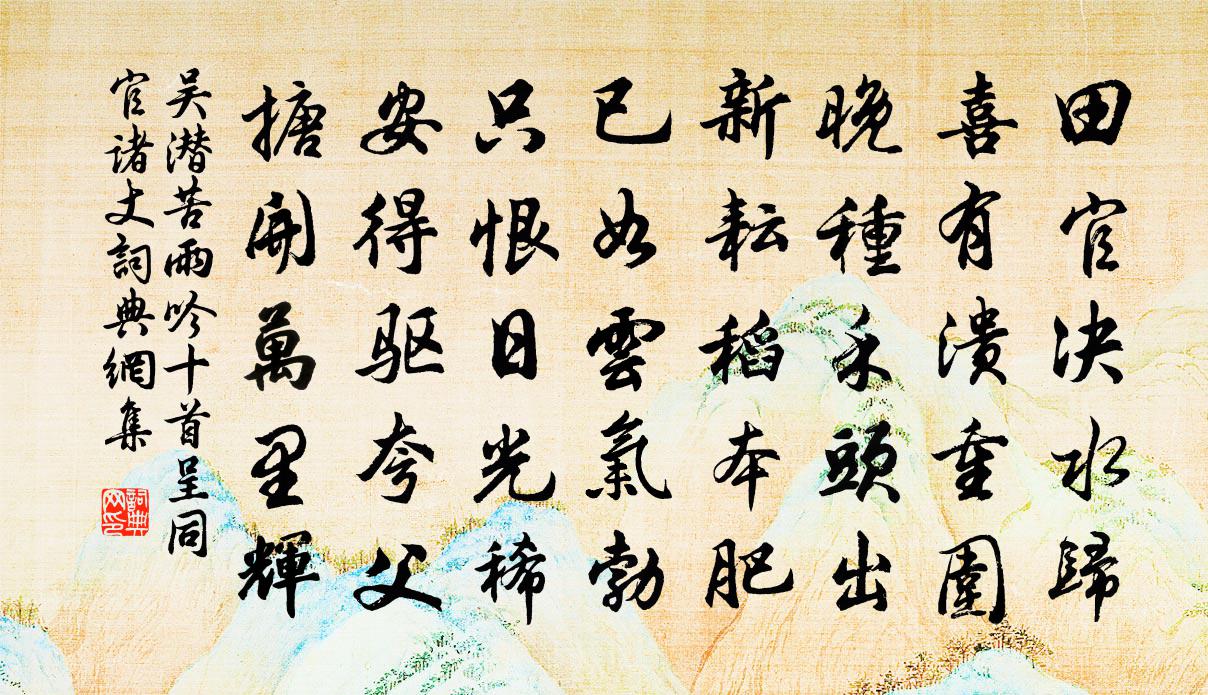 田官決水歸
喜有潰重圍
晚種禾頭出
新耘稻本肥
已如雲氣勃
只恨日光稀
安得驱夸父
搪開萬里輝
吴潛苦雨吟十首呈同
官诸丈詞典網集
詞典網印